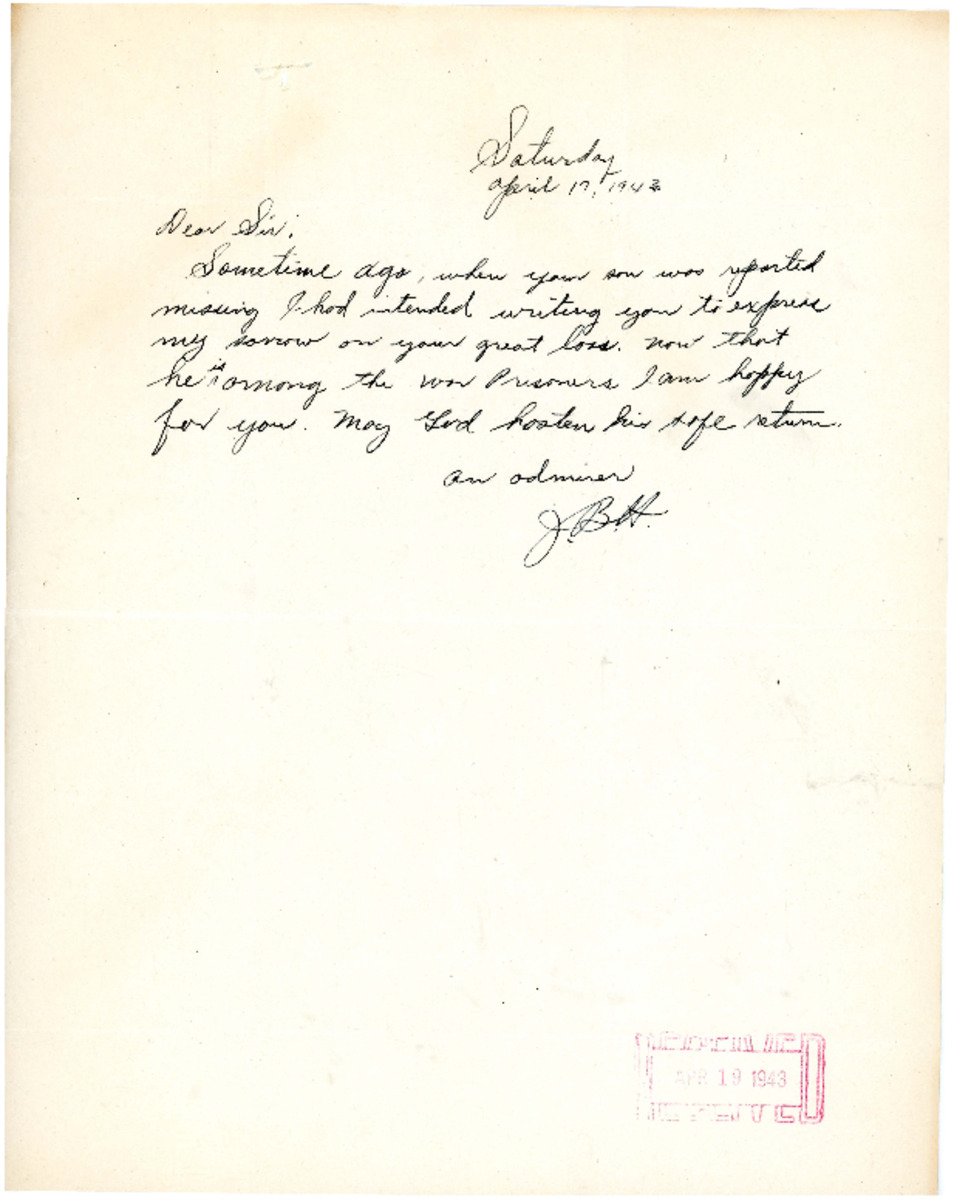 Saturday
April 17, 1943
Dear Sir:
Sometime ago, when your son was reported
missing I had intended writing you to express
my sorrow on your great loss. Now that
he is among the war Prisoners I am happy
for you. May God hasten his safe return.
An admirer
J.B.H.
APR 19 1943